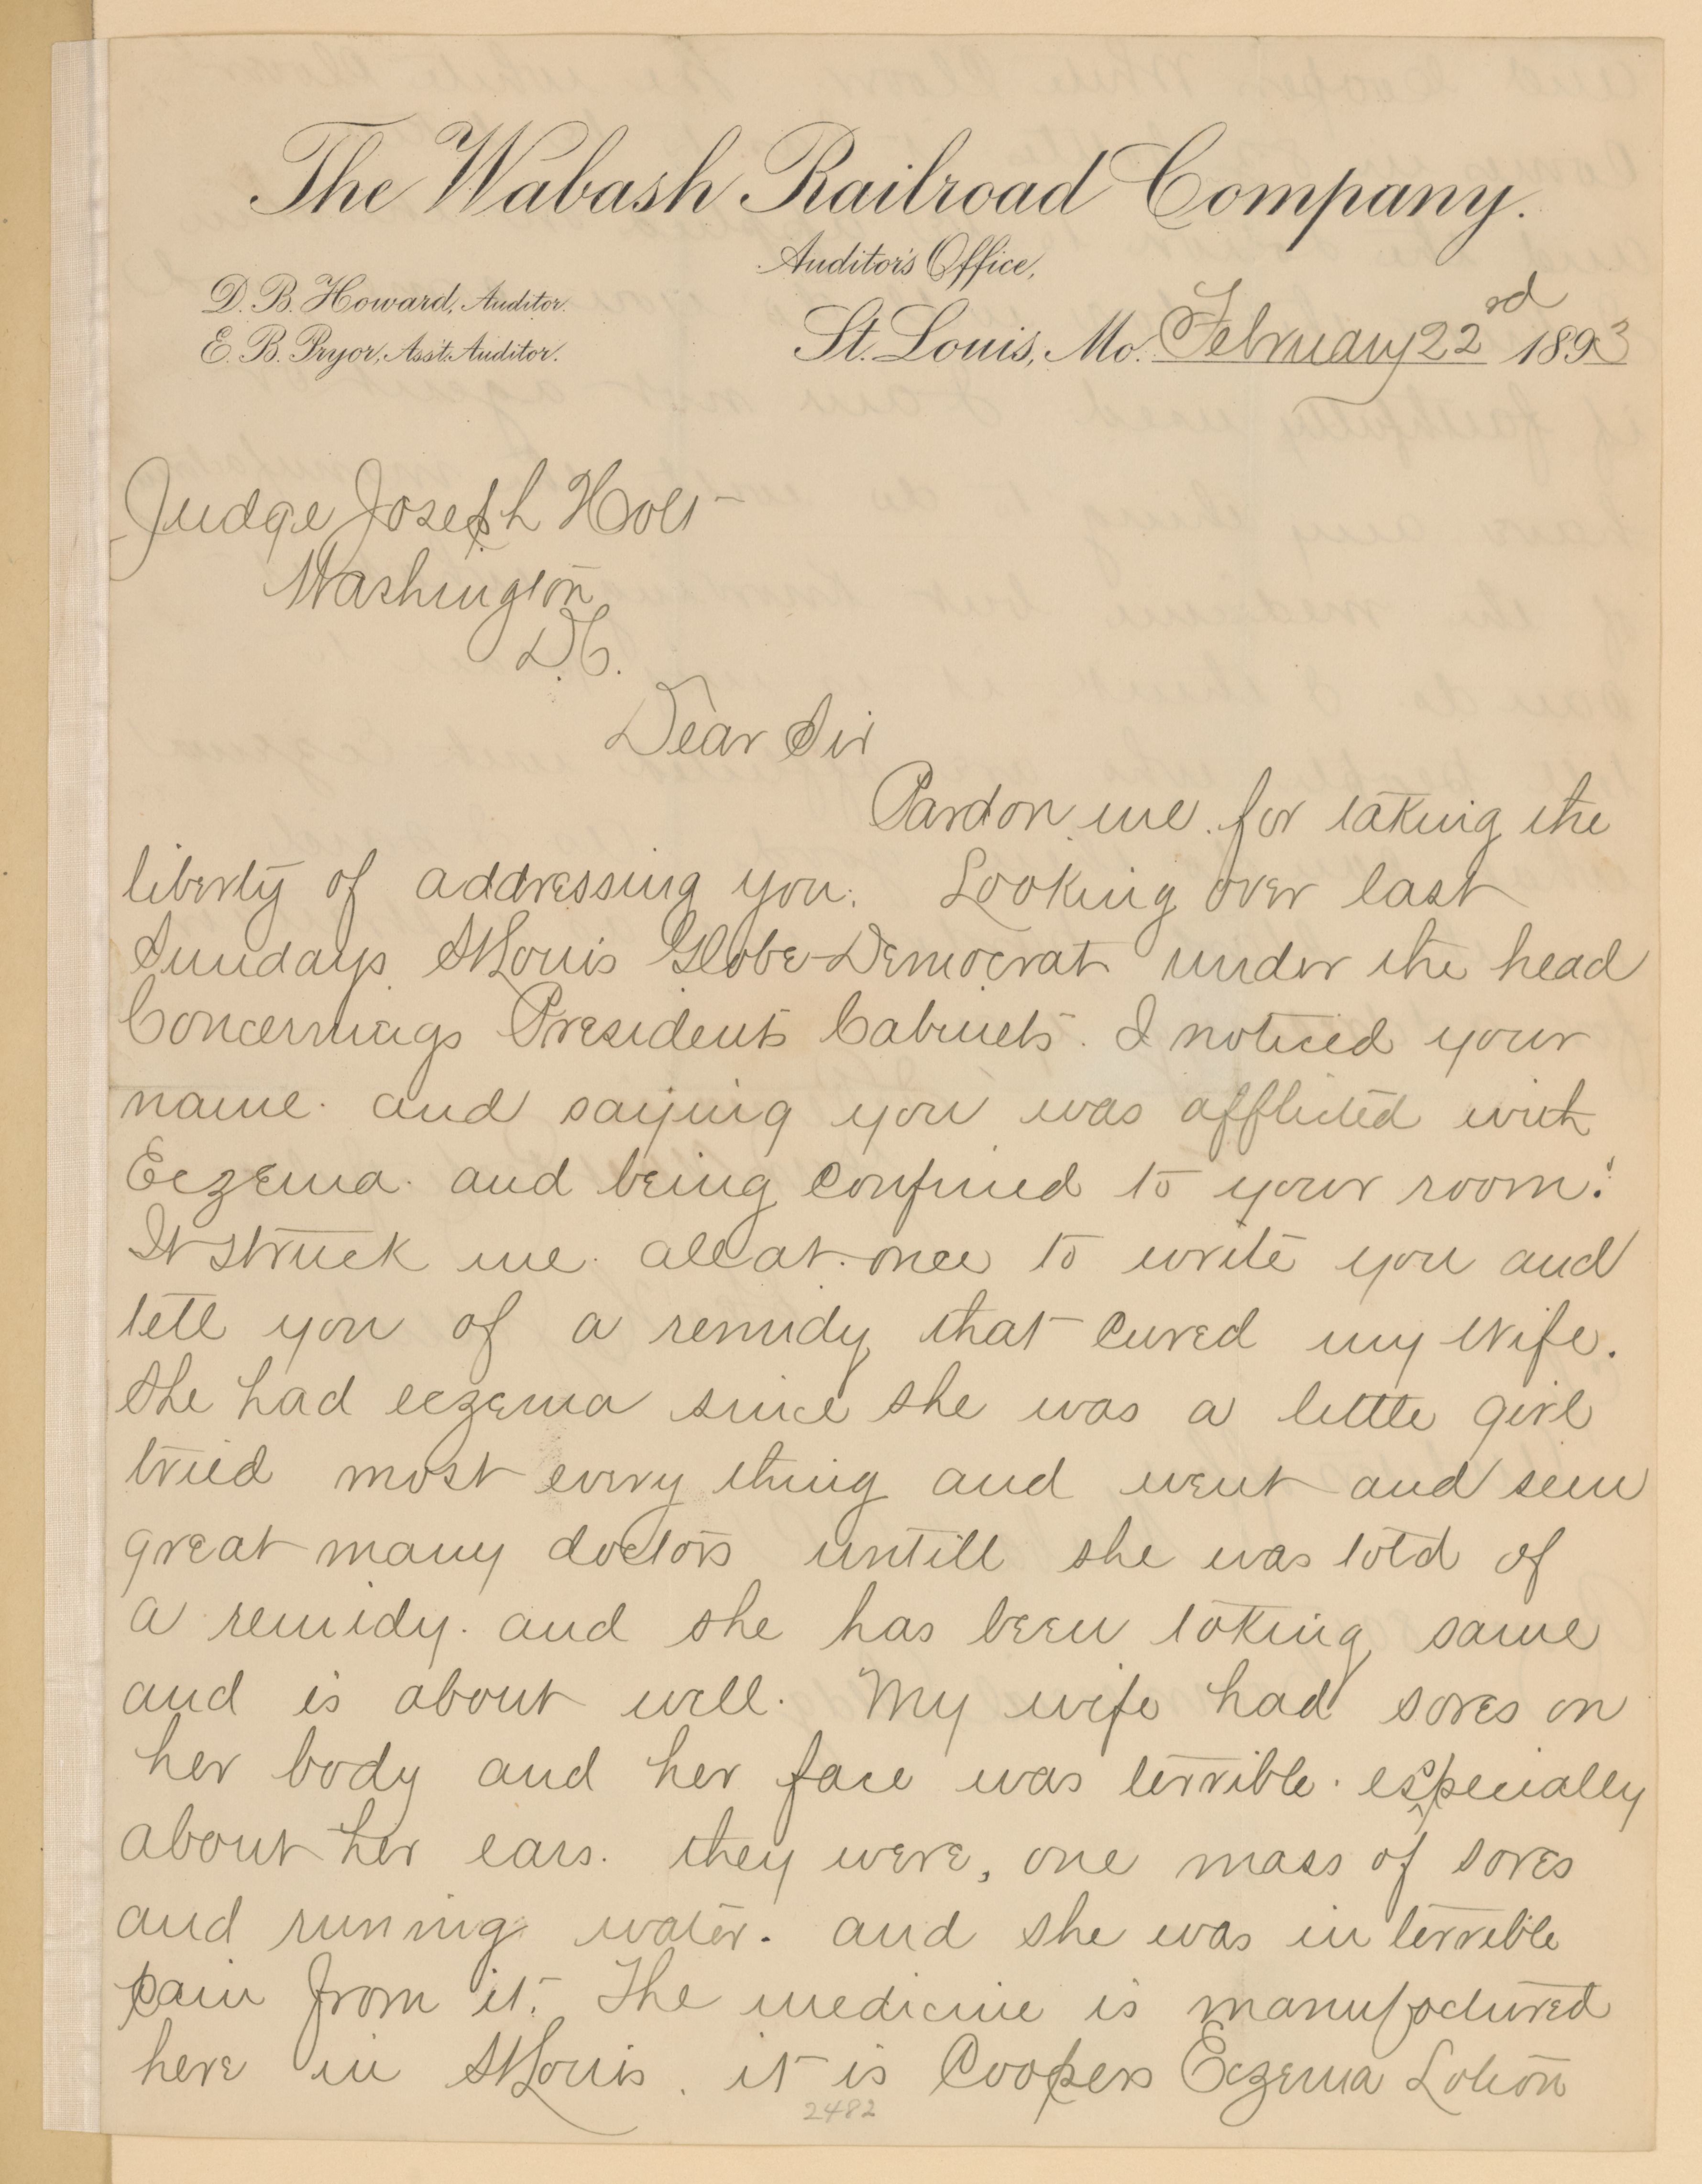 The Wabash Railroad Company.
Auditor's Office,
D. B. Howard, Auditor.
E. B. Pryor, Ass't. Auditor.
St. Louis, Mo. February 22rd 1893
Judge Joseph Holt
Washington
D.C.
Dear Sir
Pardon me. for taking the
liberty of addressing you. Looking over last
Sundays St Louis Globe-Democrat under the head
Concernings President's Cabinets. I noticed your
name. and saying you was afflicted with
Eczema. and being confined to your room.
It struck me. all at. once to write you and
tell you of a remidy that cured my wife.
She had eczema since she was a little girl
tried most every thing and went and seen
great many doctors untill she was told of
a remidy. and she has been taking same
and is about well. My wife had sores on
her body and her face was terrible. especially
about her ears. they were, one mass of sores
and running water. and she was in terrible
pain from it. The medicine is manufactured
here in St Louis. it is Coopers Eczema Lotion
2482